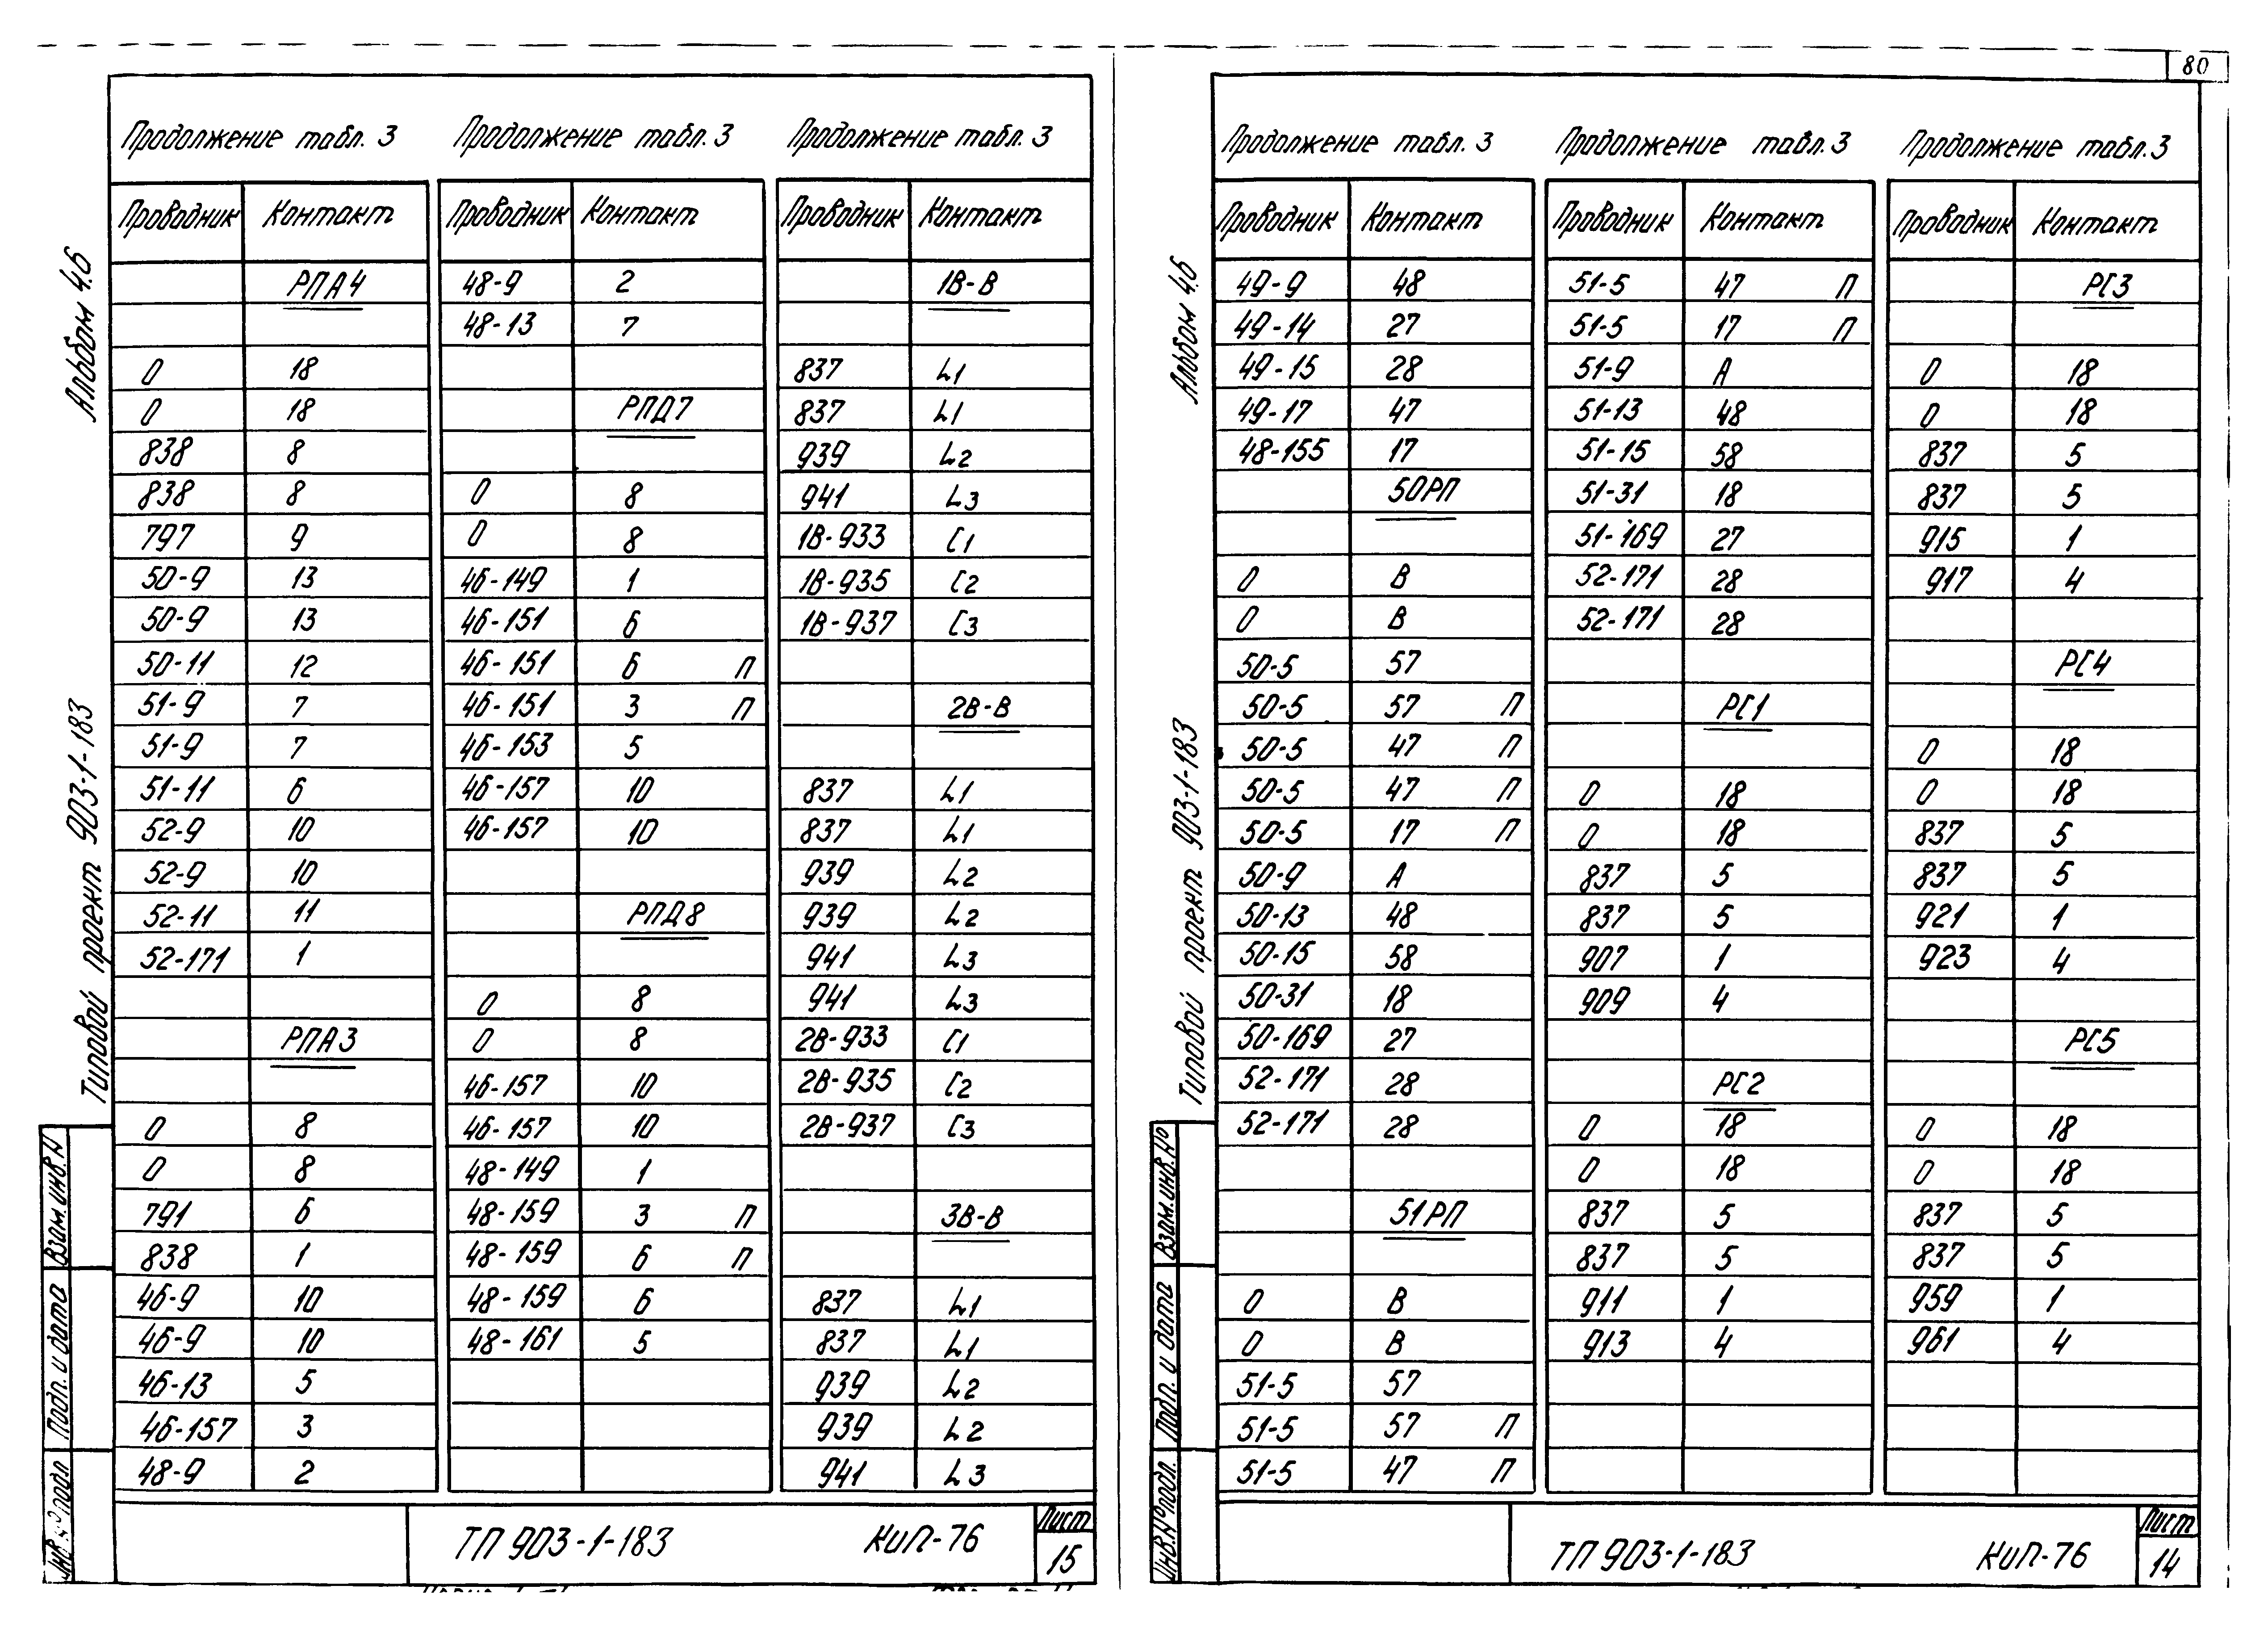 80
Альбом 4.6
Типовой проект 903-1-183
Взам.инв.N
Подп. и дата
Продолжение табл. 3
Проводник Контакт
РПА4
0 18
0 18
838 8
838 8
797 9
50-9 13
50-9 13
50-11 12
51-9 7
51-9 7
51-11 6
52-9 10
52-9 10
52-11 11
52-171 1
РПА3
0 8
0 8
791 6
838 1
46-9 10
46-9 10
46-13 5
46-157 3
48-9 2
Продолжение табл. 3
Проводник Контакт
48-9 2
48-13 7
РПД7
0 8
0 8
46-149 1
46-151 6
46-151 6 П
46-151 3 П
46-153 5
46-157 10
46-157 10
РПД8
0 8
0 8
46-157 10
46-157 10
48-149 1
48-159 3 П
48-159 6 П
48-159 6
48-161 5
Продолжение табл. 3
Проводник Контакт
1В-В
837 L1
837 L1
939 L2
941 L3
1В-933 С1
1В-935 С2
1В-937 С3
2В-В
837 L1
837 L1
939 L2
939 L2
941 L3
941 L3
2В-933 С1
2В-935 С2
2В-937 С3
3В-В
837 L1
837 L1
939 L2
939 L2
941 L3
ТП 903-1-183 КиП-76
Лист
15
Альбом 4.6
Типовой проект 903-1-183
Взам.инв.№
Подп. и дата
Инв.№подл.
Продолжение табл. 3
Проводник Контакт
49-9 48
49-14 27
49-15 28
49-17 47
48-155 17
50РП
0 В
0 В
50-5 57
50-5 57 П
50-5 47 П
50-5 47 П
50-5 17 П
50-9 А
50-13 48
50-15 58
50-31 18
50-169 27
52-171 28
52-171 28
51РП
0 В
0 В
51-5 57
51-5 57 П
51-5 47 П
Продолжение табл. 3
Проводник Контакт
51-5 47 П
51-5 17 П
51-9 А
51-13 48
51-15 58
51-31 18
51-169 27
52-171 28
52-171 28
РС1
0 18
0 18
837 5
837 5
907 1
909 4
РС2
0 18
0 18
837 5
837 5
911 1
913 4
Продолжение табл. 3
Проводник Контакт
РС3
0 18
0 18
837 5
837 5
915 1
917 4
РС4
0 18
0 18
837 5
837 5
921 1
923 4
РС5
0 18
0 18
837 5
837 5
959 1
961 4
ТП 903-1-183 КиП-76
Лист
14